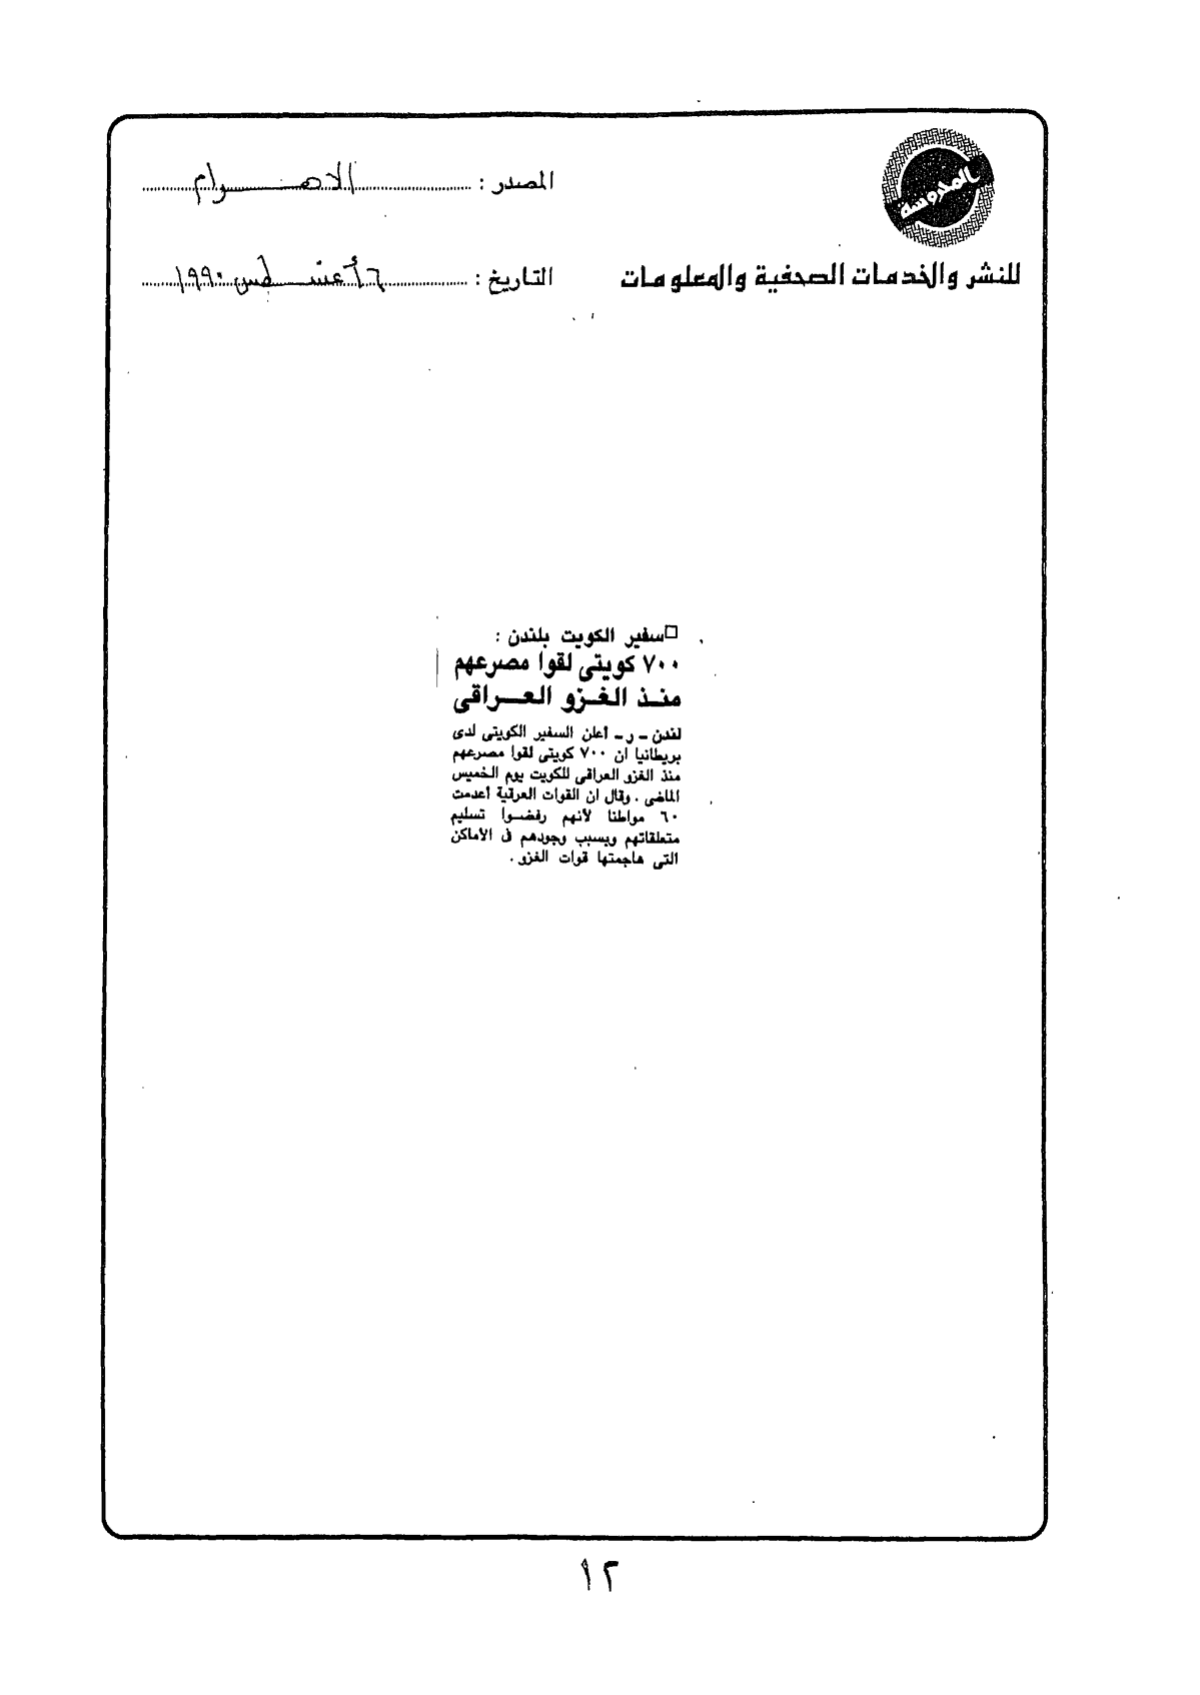 المحروسة
المصدر : الاهرام
للنشر والخدمات الصحفية والمعلومات
التاريخ : ٦ أغسطس ١٩٩٠
□ سفير الكويت بلندن :
٧٠٠ كويتى لقوا مصرعهم
منذ الغزو العراقى
لندن - ر - أعلن السفير الكويتى لدى
بريطانيا ان ٧٠٠ كويتى لقوا مصرعهم
منذ الغزو العراقى للكويت يوم الخميس
الماضى . وقال ان القوات العرقية أعدمت
٦٠ مواطنا لأنهم رفضوا تسليم
متعلقاتهم وبسبب وجودهم فى الأماكن
التى هاجمتها قوات الغزو .
١٢